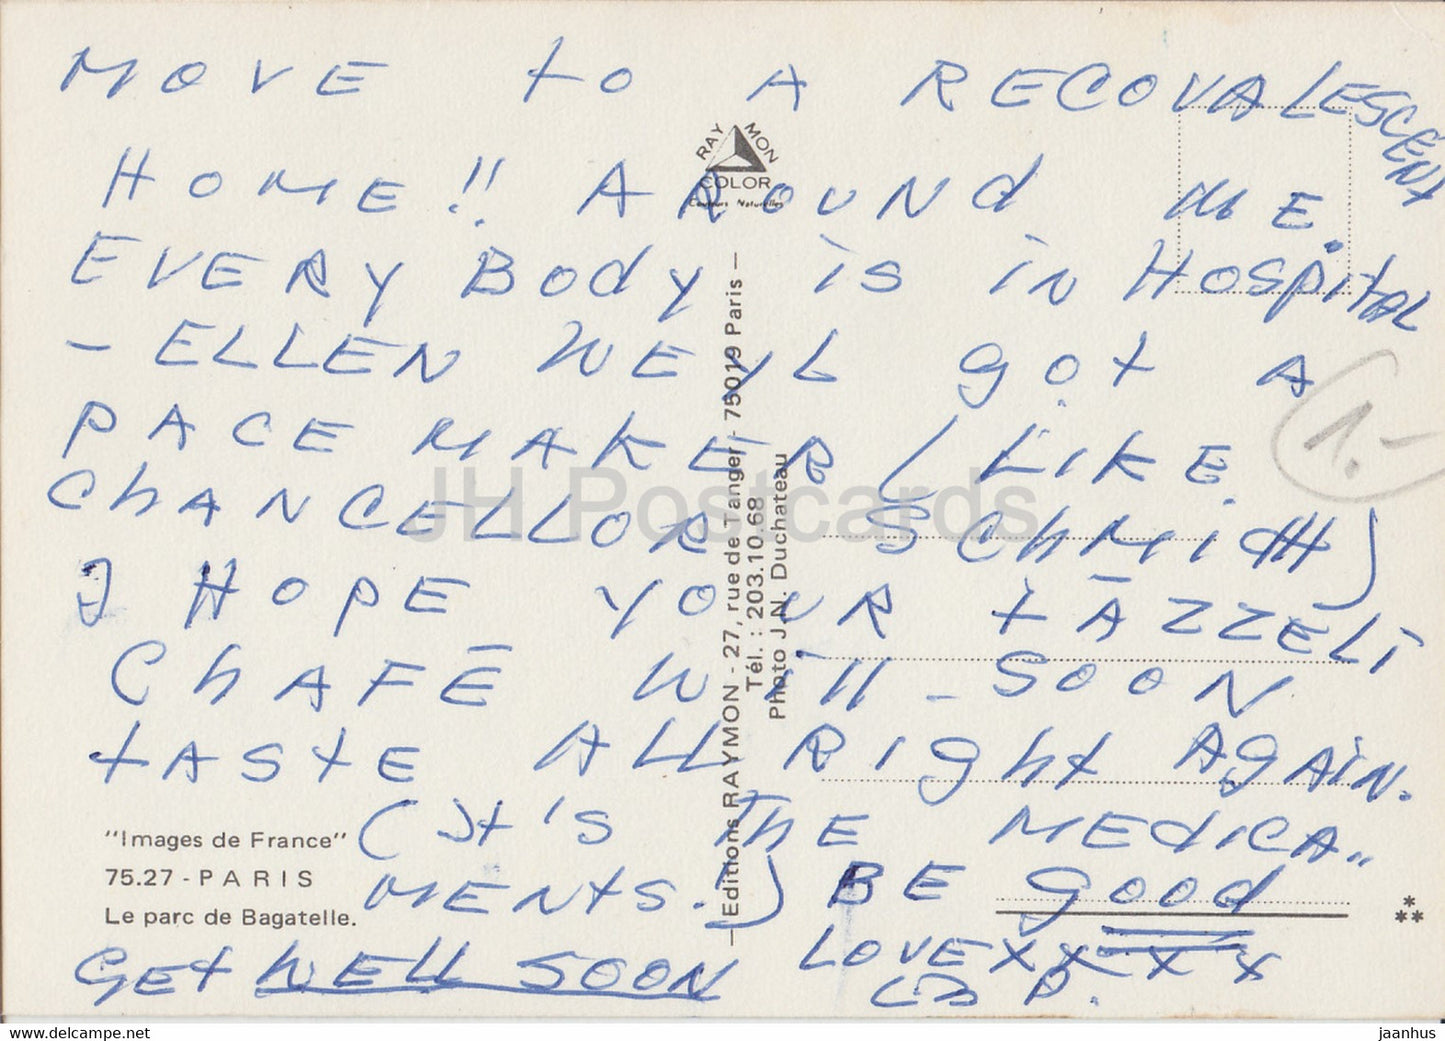 MOVE to A RECOVALESCENt
HOME!! AROUNd ME.
EVERYBody is iN HOSpitAL
- ELLEN WEYL got A
PACEMAKER (LiKE
ChANCELLOR SChMidt)
I HOPE YOUR tĀZZELi
ChAFĒ will - SOON
tASTE ALL Right AgAiN.
(It's ThE MEdiCA..
MENtS.!) BE good
GEt WELL SOON LOVE XXXX
RAYMON
COLOR
Couleurs Naturelles
— Editions RAYMON - 27, rue de Tanger - 75019 Paris —
Tél. : 203.10.68
Photo J.N. Duchateau
"Images de France"
75.27 - PARIS
Le parc de Bagatelle.
1.-
JH Postcards
www.delcampe.net
jaanhus